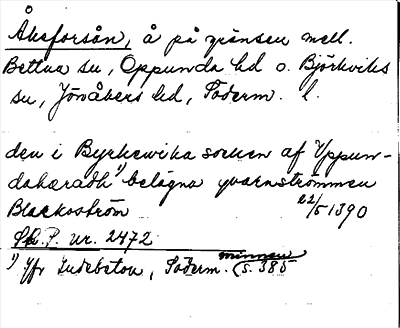 Åkeforsån, å på gränsen mell.
Bettna sn, Oppunda hd o. Björkviks
sn, Jönåkers hd, Söderm. l.
den i Byrkewika socken af Uppun-
dahæradh¹⁾ belägna qvarnströmmen
Blackoström 22/5 1390
Sk. P. nr. 2472
¹⁾ Jfr Ludebeton, Söderm. minnen s. 385